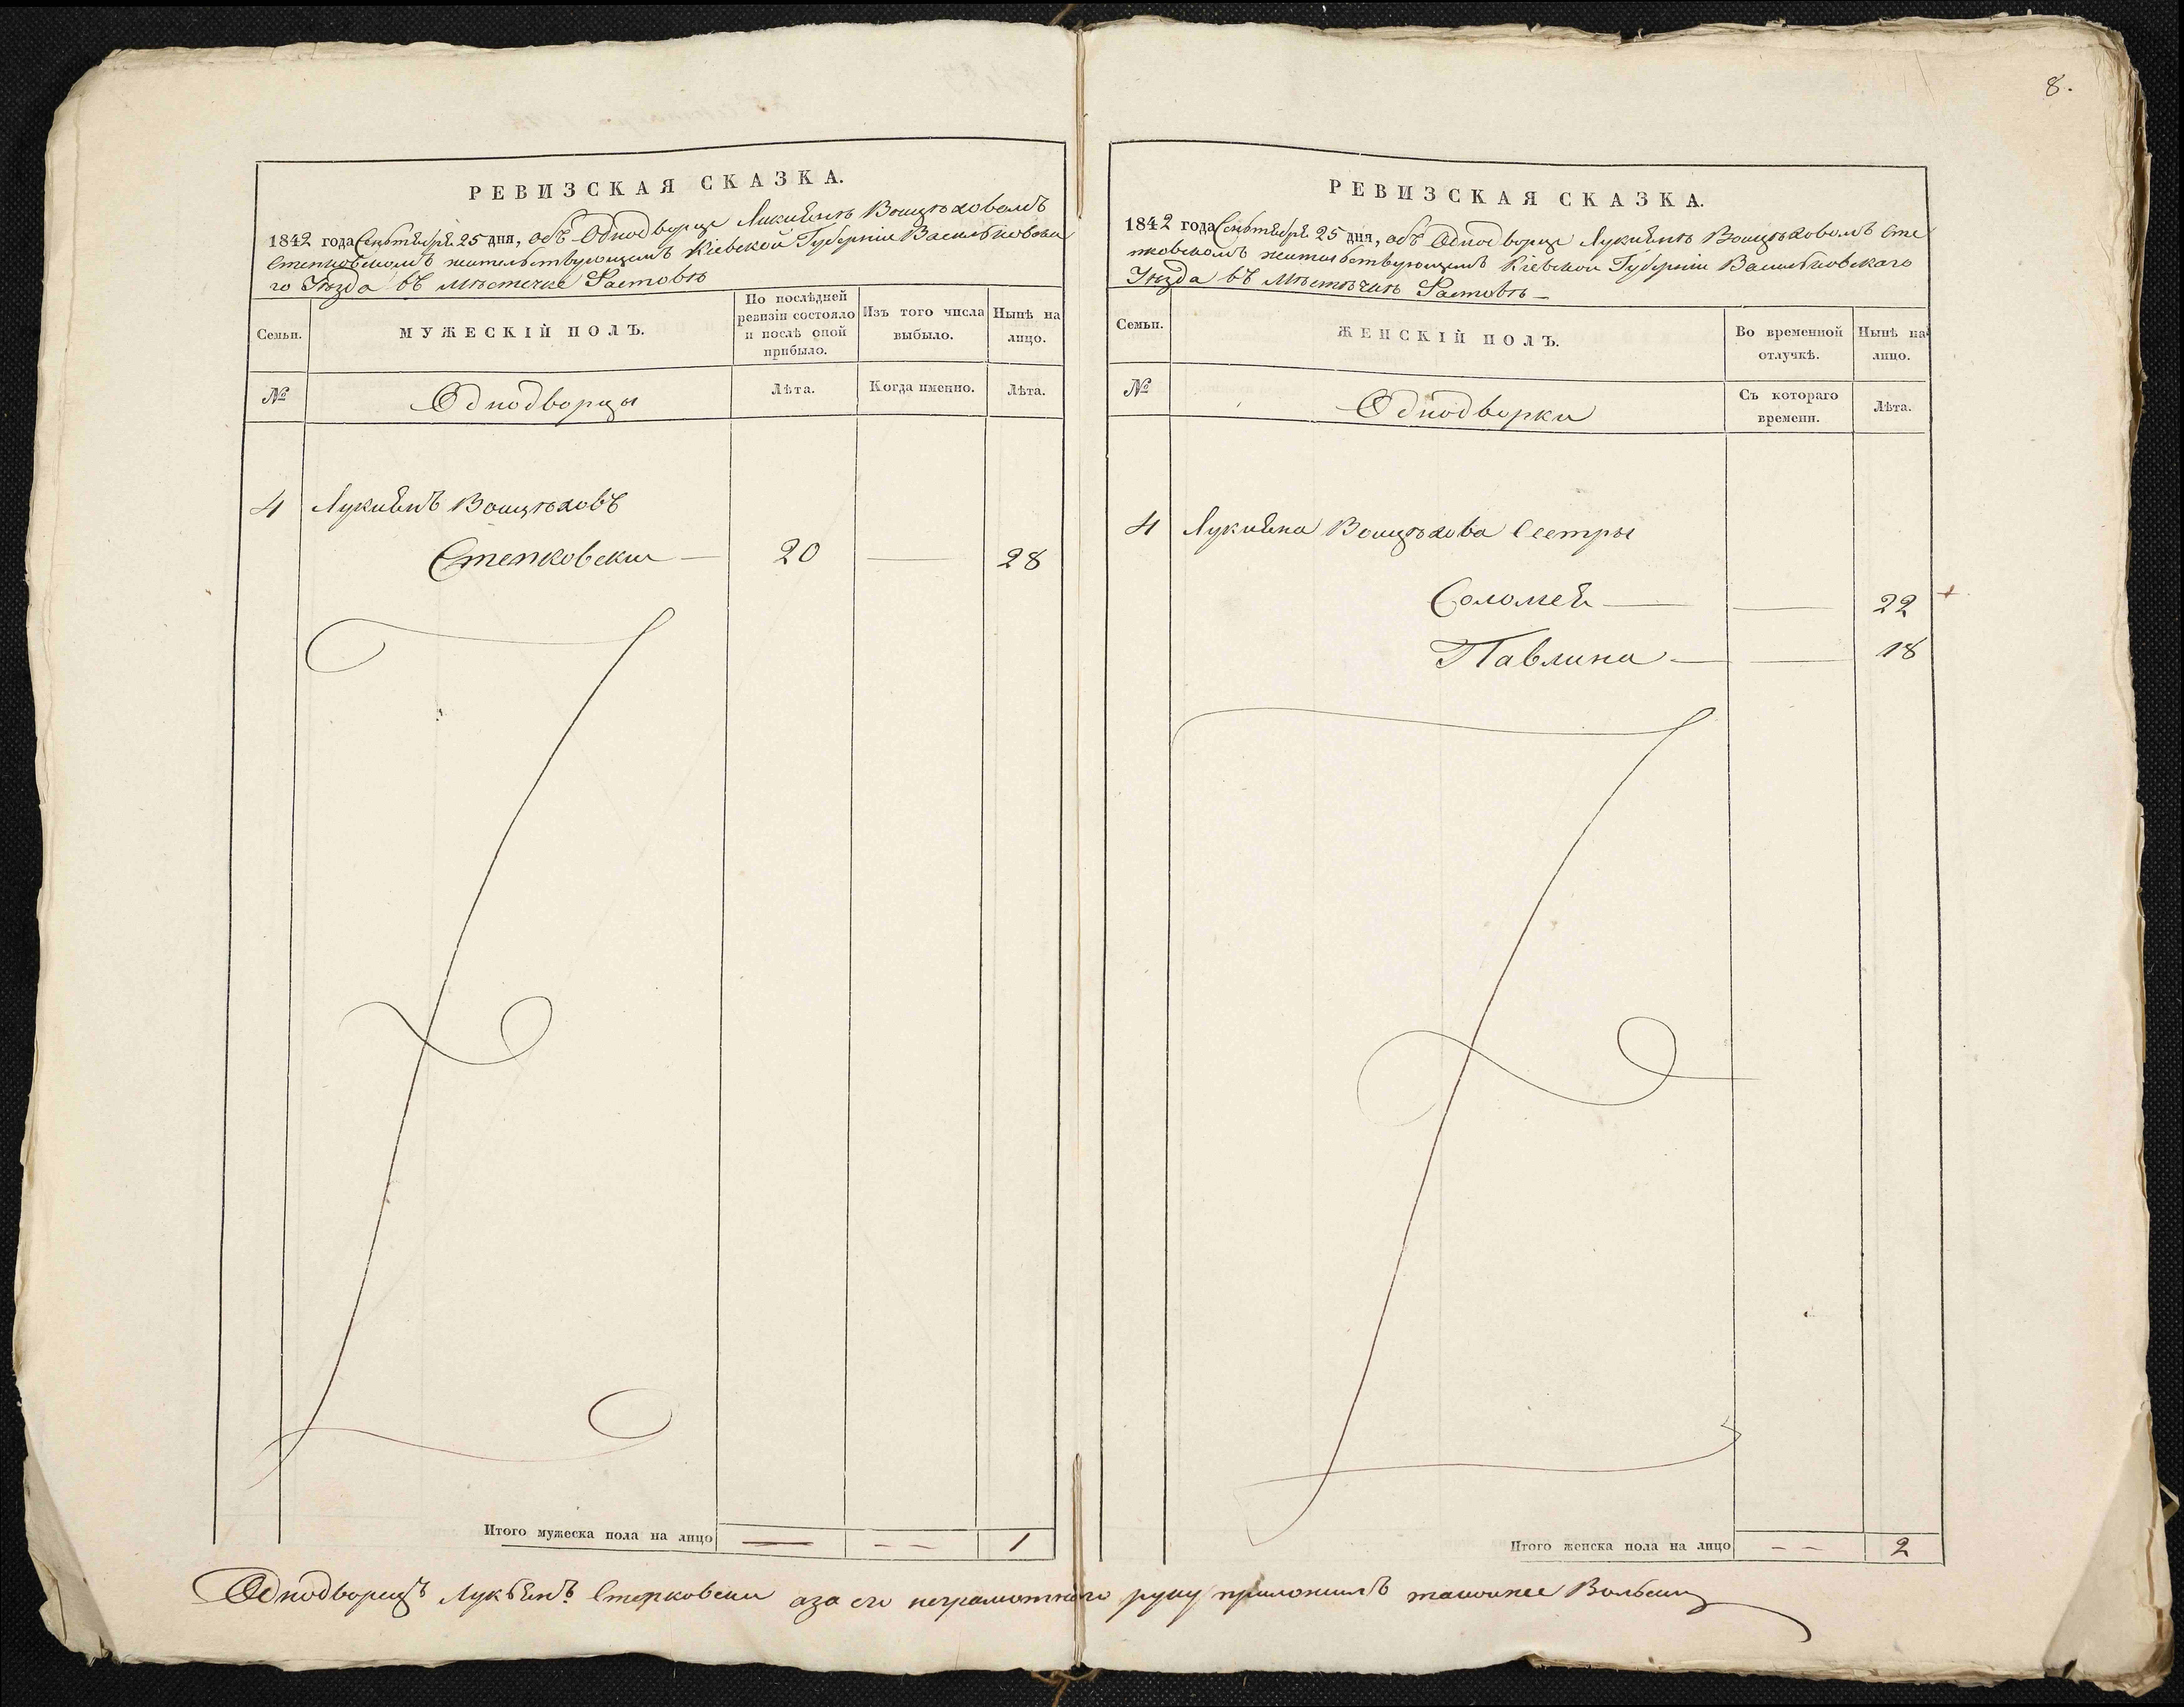 8.
РЕВИЗСКАЯ СКАЗКА.
1842 года Сентября 25 дня, объ Однодворце Лукиянѣ Воицѣховомъ
Стемковскомъ жительствующемъ Кіевской Губерніи Васильковска
го Уѣзда въ мѣстечке Фастовѣ
Семьи.
МУЖЕСКІЙ ПОЛЪ.
По послѣдней ревизіи состояло и послѣ оной прибыло.
Изъ того числа выбыло.
Нынѣ на лицо.
№
Однодворцы
Лѣта.
Когда именно.
Лѣта.
4 Лукиянъ Воицѣховъ
Стемковски — 20 — 28
Итого мужеска пола на лицо — — — 1
РЕВИЗСКАЯ СКАЗКА.
1842 года Сентября 25 дня, объ Однодворце Лукиянѣ Воицѣховомъ Сте
мковскомъ жительствующемъ Кіевской Губерніи Васильковскаго
Уѣзда въ Мѣстѣчкѣ Фастовѣ —
Семьи.
ЖЕНСКІЙ ПОЛЪ.
Во временной отлучкѣ.
Нынѣ на лицо.
№
Однодворки
Съ котораго времени.
Лѣта.
4 Лукияна Воицѣхова Сестры
Соломея — — 22 +
Павлина — — 18
Итого женска пола на лицо — — 2
Однодворецъ Лукьянъ Стемковски аза его неграмотнаго руку приложилъ